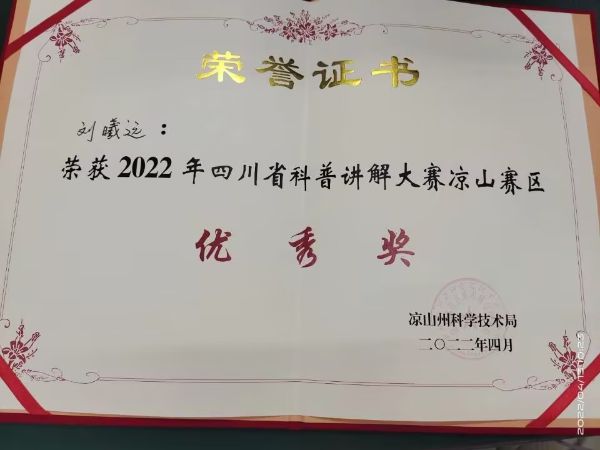 荣誉证书
刘曦运：
荣获2022年四川省科普讲解大赛凉山赛区
优秀奖
凉山州科学技术局
二〇二二年四月